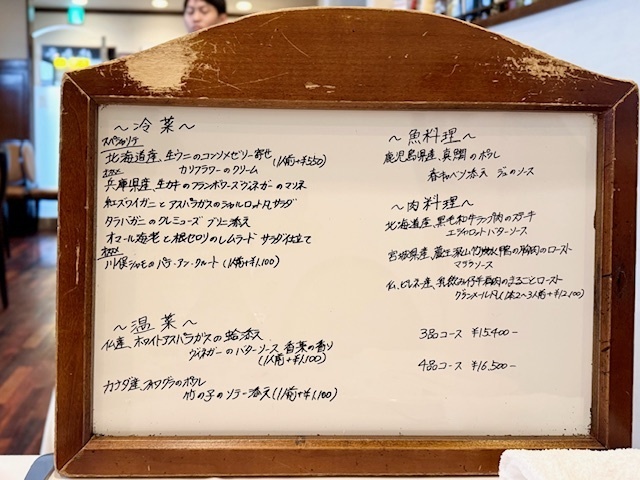 ～冷菜～
スペシャリテ
北海道産、生ウニのコンソメゼリー寄せ
カリフラワーのクリーム (1人前+¥550)
オススメ
兵庫県産、生カキのフランボワーズヴィネガーのマリネ
紅ズワイガニとアスパラガスのシャルロット風サラダ
タラバガニのクレミューズ ブリニ添え
オマール海老と根セロリのレムラード サラダ仕立て
オススメ
川俣シャモのパテ・アン・クルート (1人前+¥1,100)
～温菜～
仏産、ホワイトアスパラガスの蛤添え
ヴィネガーのバターソース 香菜の香り
(1人前+¥1,100)
カナダ産、フォワグラのポワレ
竹の子のソテー添え (1人前+¥1,100)
～魚料理～
鹿児島県産、真鯛のポワレ
春キャベツ添え ジュのソース
～肉料理～
北海道産、黒毛和牛ランプ肉のステーキ
エシャロットバターソース
宮城県産、蔵王深山竹炭水鴨の胸肉のロースト
マサラソース
仏、ピレネー産、乳飲み仔羊肩肉のまるごとロースト
グランメール風 (1本2～3人前+¥12,100)
3品コース ¥15,400-
4品コース ¥16,500-